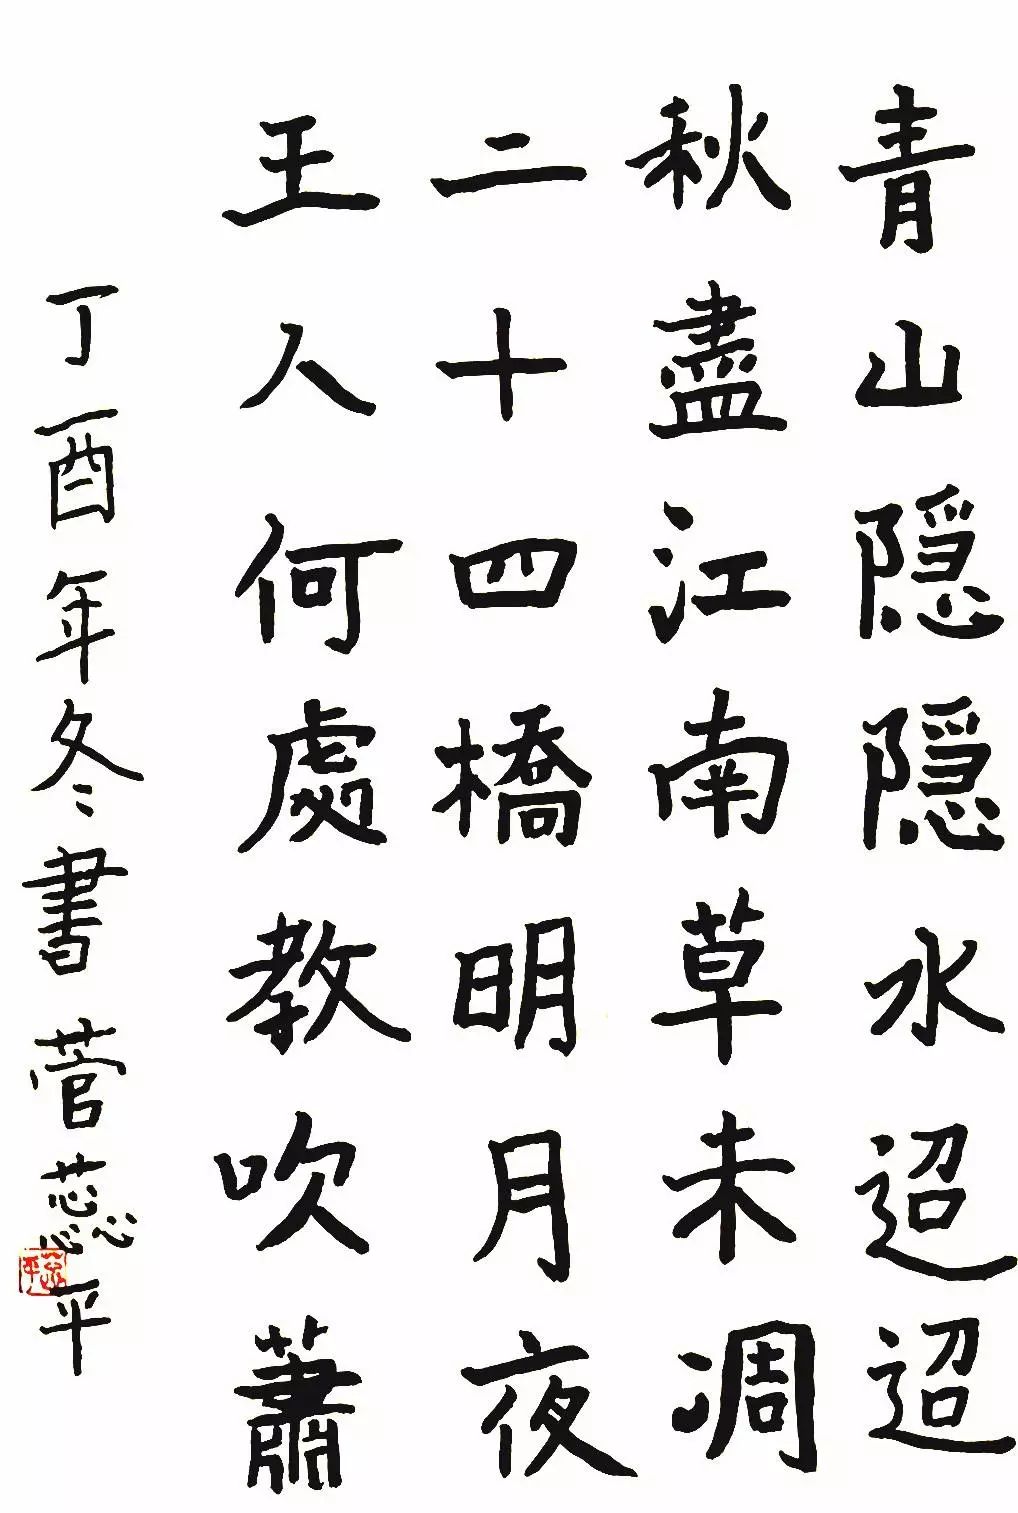 青山隐隐水迢迢
秋盡江南草未凋
二十四橋明月夜
王人何處教吹蕭
丁酉年冬書菅蕊平
蕊平